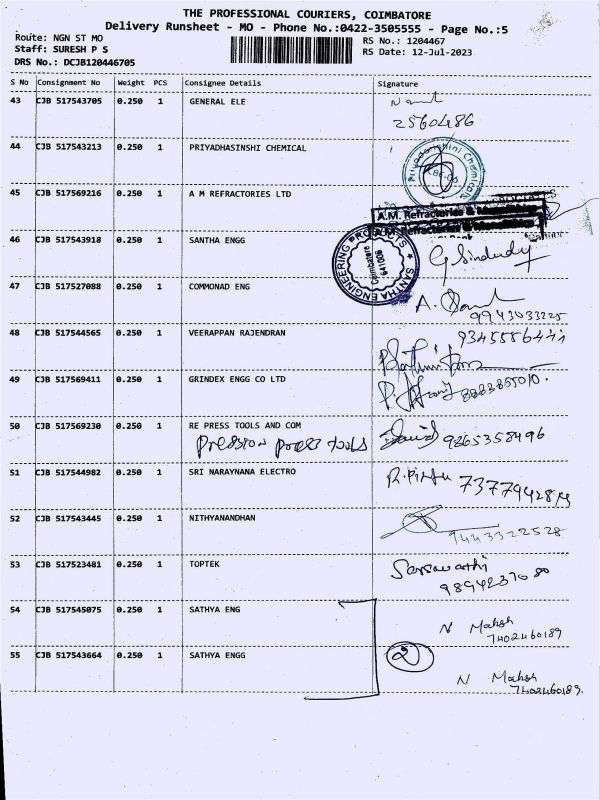 THE PROFESSIONAL COURIERS, COIMBATORE
Delivery Runsheet - MO - Phone No.:0422-3505555 - Page No.:5
Route: NGN ST MO
RS No.: 1204467
Staff: SURESH P S
RS Date: 12-Jul-2023
DRS No.: DCJB120446705
S No Consignment No Weight PCS Consignee Details Signature
43 CJB 517543705 0.250 1 GENERAL ELE
2560486
44 CJB 517543213 0.250 1 PRIYADHASINSHI CHEMICAL
Priyadarshini Chemicals
CBE-05
45 CJB 517569216 0.250 1 A M REFRACTORIES LTD
A.M. Refractories &
A.M. Refractories &
46 CJB 517543918 0.250 1 SANTHA ENGG
SANTHA ENGINEERING PRODUCTS
Coimbatore
641006
G Sindudy
47 CJB 517527088 0.250 1 COMMONAD ENG
9943033225
48 CJB 517544565 0.250 1 VEERAPPAN RAJENDRAN
49 CJB 517569411 0.250 1 GRINDEX ENGG CO LTD
50 CJB 517569230 0.250 1 RE PRESS TOOLS AND COM
press tools
9865358496
51 CJB 517544982 0.250 1 SRI NARAYNANA ELECTRO
52 CJB 517543445 0.250 1 NITHYANANDHAN
9443322528
53 CJB 517523481 0.250 1 TOPTEK
Saraswathi
54 CJB 517545075 0.250 1 SATHYA ENG
N Mahsh
7402460189
55 CJB 517543664 0.250 1 SATHYA ENGG
2
N Mahsh
7402460189.